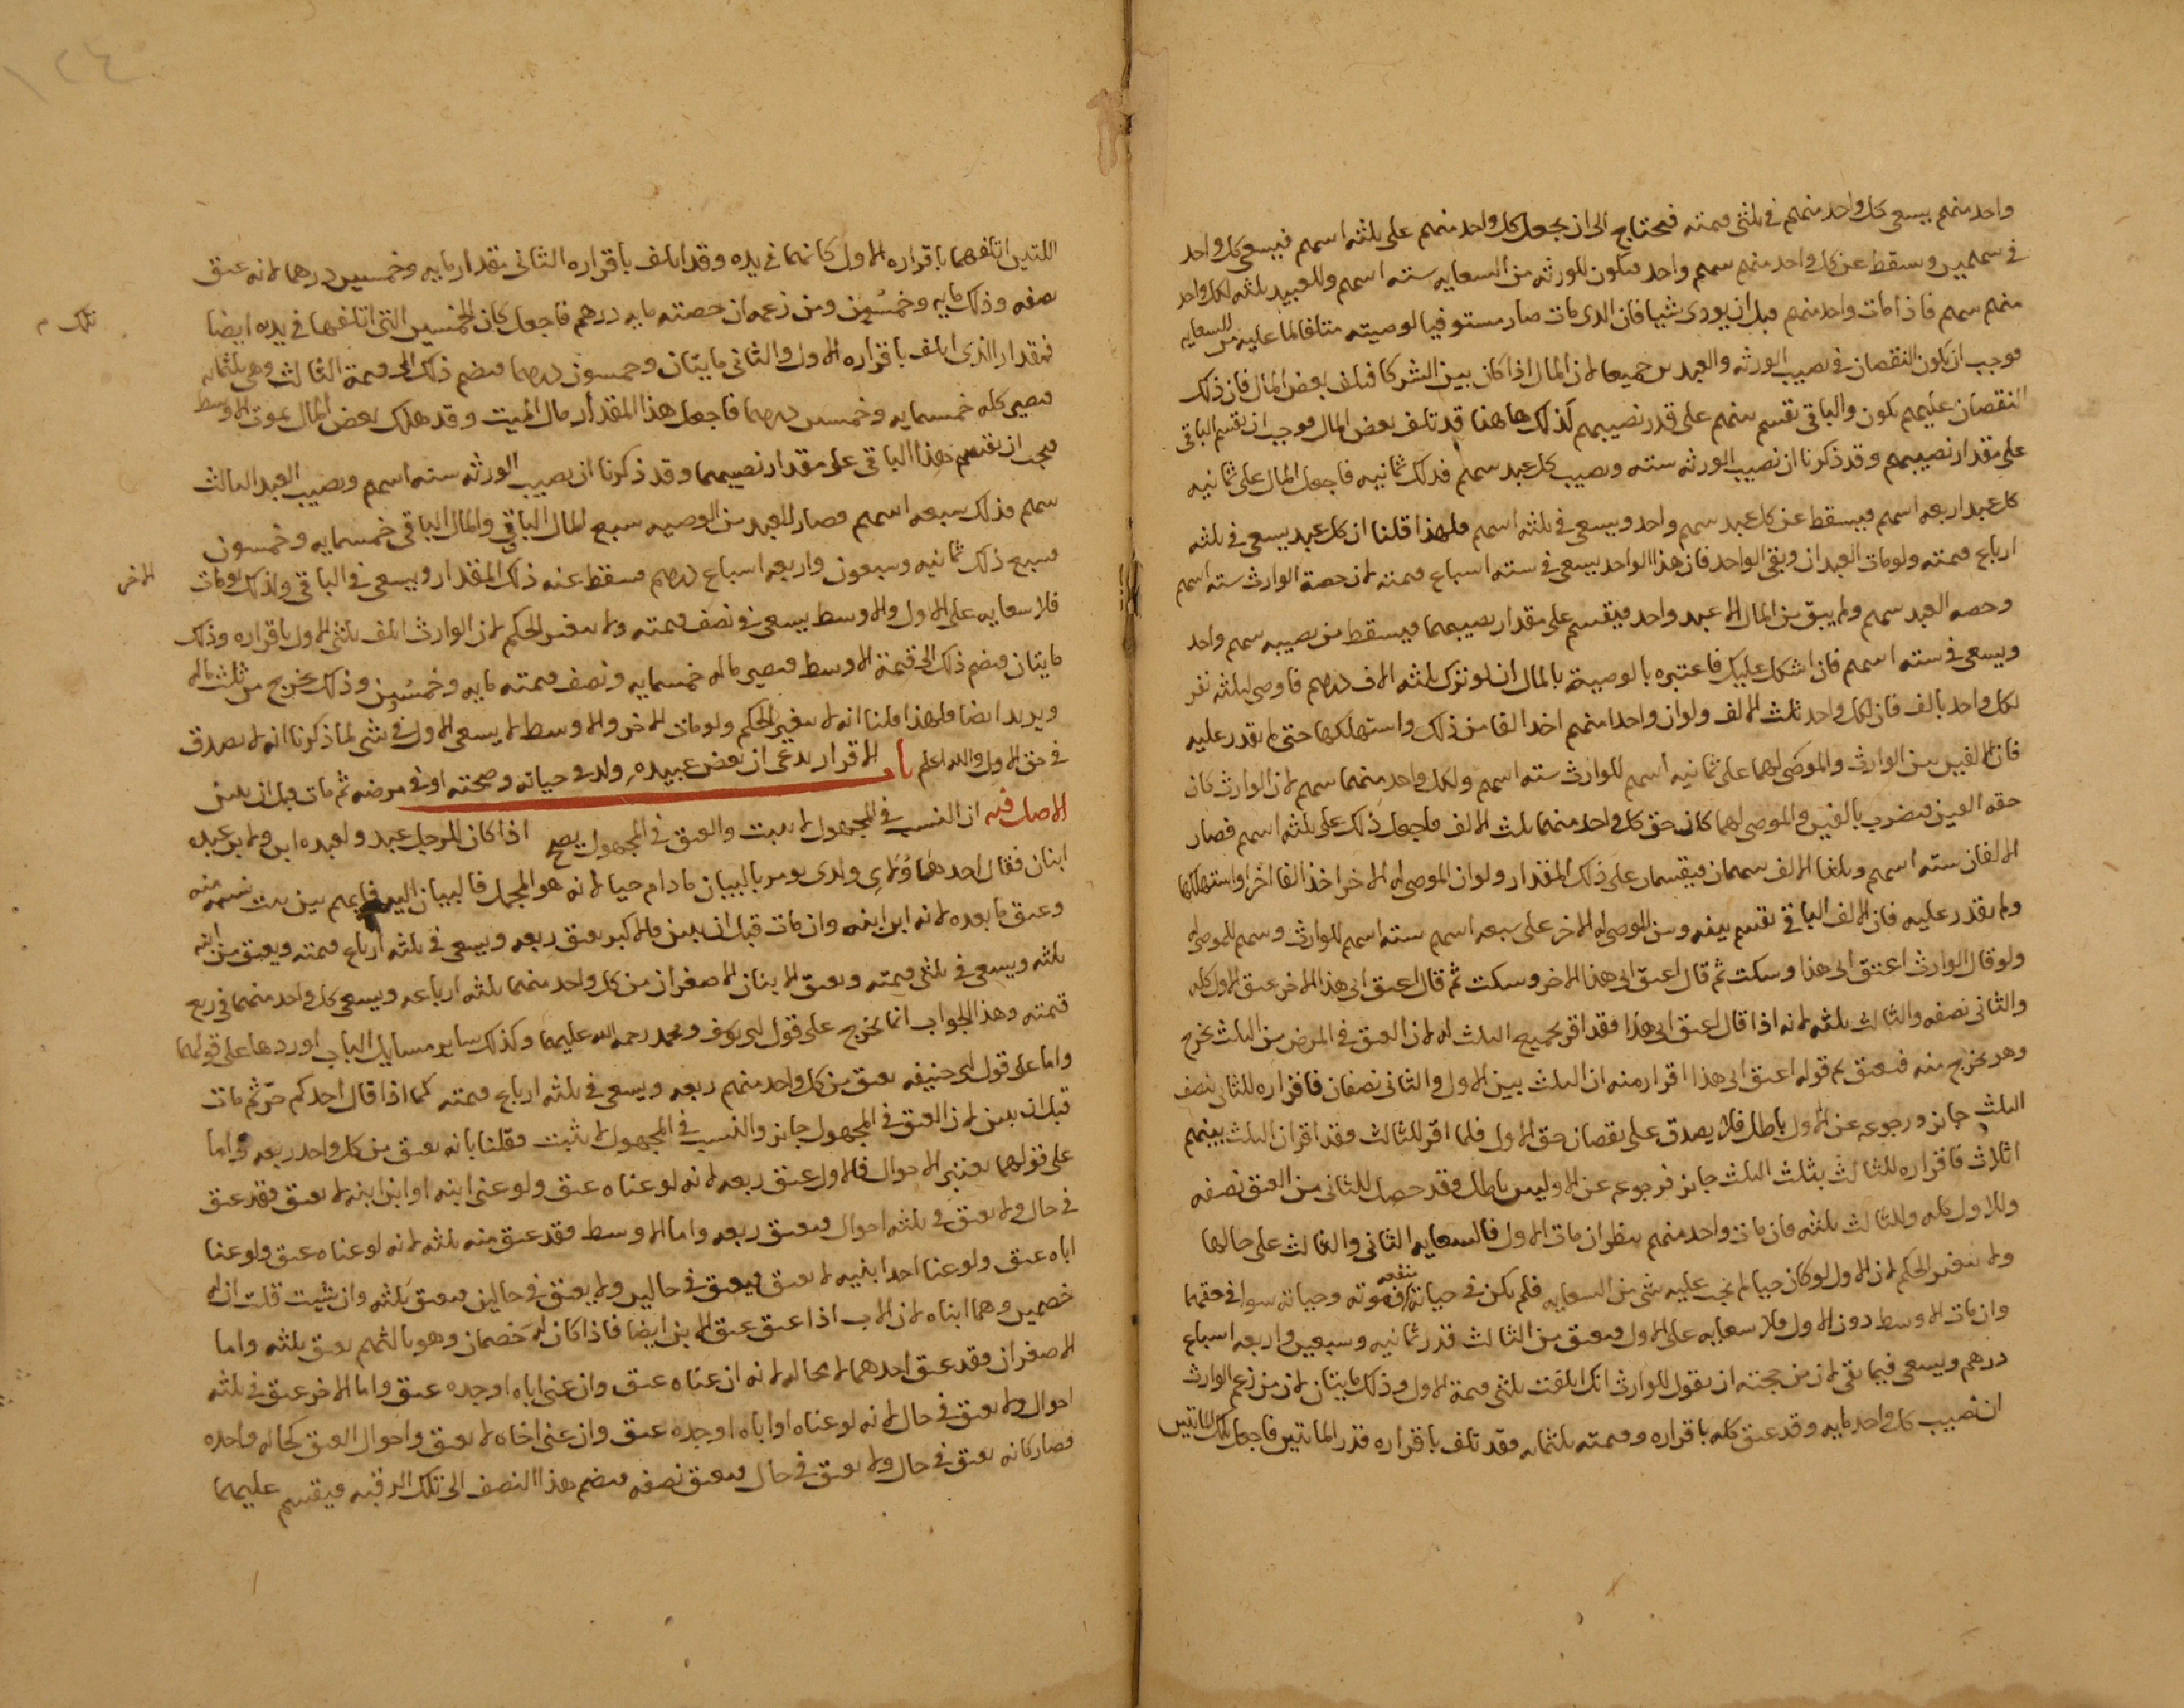 واحد منهم يسعى كل واحد منهم في ثلثي قيمته فيحتاج الى ان يجعل كل واحد منهم على ثلثه اسهم فيسعى كل واحد
في سهمين وسقط عن كل واحد منهم سهم واحد فيكون للورثه من السعايه سته اسهم وللعبيد ثلثه لكل واحد
منهم سهم فاذا مات واحد منهم قبل ان يودى شيا فان الذى مات صار مستوفيا لوصيته متلفا لما عليه من السعايه
فوجب ان يكون النقصان في نصيب الورثه والعبدين جميعا لان المال اذا كان بين الشركا فتلف بعض المال فان ذلك
النقصان عليهم يكون والباقي يقسم بينهم على قدر نصيبهم كذلك هاهنا قد تلف بعض المال فوجب ان يقسم الباقي
على مقدار نصيبهم وقد ذكرنا ان نصيب الورثه سته ونصيب كل عبد سهم فذلك ثمانيه فاجعل المال على ثمانيه
كل عبد اربعه اسهم فيسقط عن كل عبد سهم واحد ويسعى في ثلثه اسهم فلهذا قلنا ان كل عبد يسعى في ثلثه
ارباع قيمته ولو مات العبدان وبقي الواحد فان هذا الواحد يسعى في سته اسباع قيمته لان حصة الوارث سته اسهم
وحصه العبد سهم ولم يبق من المال الا عبد واحد فيقسم على مقدار نصيبهما فيسقط من نصيبه سهم واحد
ويسعى في سته اسهم فان اشكل عليك فاعتبره بالوصية بالمال ان لو ترك ثلثه الاف درهم فاوصى لثلثه نفر
لكل واحد بالف فان لكل واحد ثلث الالف ولو ان واحدا منهم اخد الفا من ذلك واستهلكها حتى لم يقدر عليه
فان الالفين بين الوارث والموصى لهما على ثمانيه اسهم للوارث سته اسهم ولكل واحد منهما سهم لان الوارث كان
حقه الفين فيضرب بالفين والموصى لهما كان حق كل واحد منهما ثلث الالف فاجعل ذلك على ثلثه اسهم فصار
الالفان سته اسهم وثلثا الالف سهمان فيقسمان على ذلك المقدار ولو ان الموصى له الاخر اخذ الفا اخر واستهلكها
ولم يقدر عليه فان الالف الباقي يقسم بينه وبين الموصى له الاخر على سبعه اسهم سته اسهم للوارث وسهم للموصى له
ولو قال الوارث اعتق ابي هذا وسكت ثم قال اعتق ابي هذا الاخر وسكت ثم قال اعتق ابي هذا الاخر عتق الاول كله
والثاني نصفه والثالث ثلثه لانه اذا قال اعتق ابي هذا فقد اقر بجميع الثلث له لان العتق في المرض من الثلث يخرج
وهو يخرج منه فيعتق ثم قوله اعتق ابي هذا اقرار منه ان الثلث بين الاول والثاني نصفان فاقراره للثاني نصف
الثلث جايز ورجوعه عن الاول باطل فلا يصدق على نقصان حق الاول فلما اقر للثالث فقد اقر ان الثلث بينهم
اثلاث فاقراره للثالث بثلث الثلث جايز فرجوعه عن الاوليين باطل وقد حصل للثاني من العتق نصفه
وللاول كله وللثالث ثلثه فان مات واحد منهم ينظر ان مات الاول فالسعايه الثاني والثالث على حالها
ولا يتغير الحكم لان الاول لو كان حيا لم يجب عليه شي من السعايه فلم يكن في حياته منفعه فموته وحياته سوا في حقهما
وان مات الاوسط دون الاول فلا سعايه على الاول ويعتق من الثالث قدر ثمانيه وسبعين واربعه اسباع
درهم ويسعى فيما بقي لان من حجته ان يقول للوارث انك اتلفت ثلثي قيمة الاول وذلك مايتان لان من زعم الوارث
ان نصيب كل واحد مايه وقد عتق كله باقراره وقيمته ثلثمايه فقد تلف باقراره قدر المايتين فاجعل تلك المايتين
اللتين اتلفهما باقراره الاول كانهما في يده وقد اتلف باقراره الثاني مقدار مايه وخمسين درهما لانه عتق
نصفه وذلك مايه وخمسين ومن زعمه ان حصته مايه درهم فاجعل كان الخمسين التي اتلفها في يده ايضا
فمقدار الذى اتلف باقراره الاول والثاني مايتان وخمسون درهما فيضم ذلك الى قيمة الثالث وهي ثلثمايه
فيصير كله خمسمايه وخمسين درهما فاجعل هذا المقدار مال الميت وقد هلك بعض المال بموت الاوسط
فيجب ان يقسم هذا الباقي على مقدار نصيبهما وقد ذكرنا ان نصيب الورثه سته اسهم ونصيب العبد الثالث
سهم فذلك سبعه اسهم فصار للعبد من الوصيه سبع المال الباقي والمال الباقي خمسمايه وخمسون
فسبع ذلك ثمانيه وسبعون واربعه اسباع درهم فيسقط عنه ذلك المقدار ويسعى في الباقي وكذلك لو مات
الاخر
فلا سعايه على الاول والاوسط يسعى في نصف قيمته ولا يتغير الحكم لان الوارث اتلف ثلثي الاول باقراره وذلك
مايتان فيضم ذلك الى قيمة الاوسط فيصير ماله خمسمايه ونصف قيمته مايه وخمسين وذلك يخرج من ثلث ماله
ويزيد ايضا فلهذا قلنا انه لا يتغير الحكم ولو مات الاخر والاوسط لا يسعى الاول في شي لما ذكرنا انه لا يصدق
في حق الاول والله اعلم باب الاقرار يدعى ان بعض عبيده ولده في حياته وصحته او في مرضه ثم مات قبل ان يبين
الاصل فيه ان النسب في المجهول لا يثبت والعتق في المجهول يصح اذا كان للرجل عبد ولعبده ابن ولابن عبده
ابنان فقال احد هاولاى ولدى يومر بالبيان ما دام حيا لانه هو المجمل فالبيان اليه فايهم بين يثبت نسبه منه
وعتق ما بعده لانه ابن ابنه وان مات قبل ان يبين فالاكبر يعتق ربعه ويسعى في ثلثه ارباع قيمته ويعتق من ابنه
ثلثه ويسعى في ثلثي قيمته ويعتق الابنان الاصغران من كل واحد منهما ثلثه ارباعه ويسعى كل واحد منهما في ربع
قيمته وهذا الجواب انما يخرج على قول ابى يوسف ومحمد رحمه الله عليهما وكذلك ساير مسايل الباب اوردها على قولهما
واما على قول ابى حنيفه يعتق من كل واحد منهم ربعه ويسعى في ثلثه ارباع قيمته كما اذا قال احدكم حر ثم مات
قبل ان يبين لان العتق في المجهول جايز والنسب في المجهول لا يثبت فقلنا بانه يعتق من كل واحد ربعه واما
على قولهما يعتبر الاحوال فالاول عتق ربعه لانه لو عناه عتق ولو عنى ابنه او ابن ابنه لا يعتق فقد عتق
في حال ولا يعتق في ثلثه احوال فيعتق ربعه واما الاوسط فقد عتق منه ثلثه لانه لو عناه عتق ولو عنا
اباه عتق ولو عنا احد ابنيه لا يعتق فيعتق في حالين ولا يعتق في حالين فيعتق ثلثه وان شيت قلت ان له
خصمين وهما ابناه لان الاب اذا عتق عتق الابن ايضا فاذا كان له خصمان وهو ثالثهم يعتق ثلثه واما
الاصغران فقد عتق احدهما لا محاله لانه ان عناه عتق وان عنى اباه او جده عتق واما الاخر عتق في ثلثه
احوال ولا يعتق في حال لانه لو عناه او اباه او جده عتق وان عنى اخاه لا يعتق واحوال العتق كحاله واحده
فصار كانه يعتق في حال ولا يعتق في حال فيعتق نصفه فيضم هذا النصف الى تلك الرقبه فيقسم عليهما